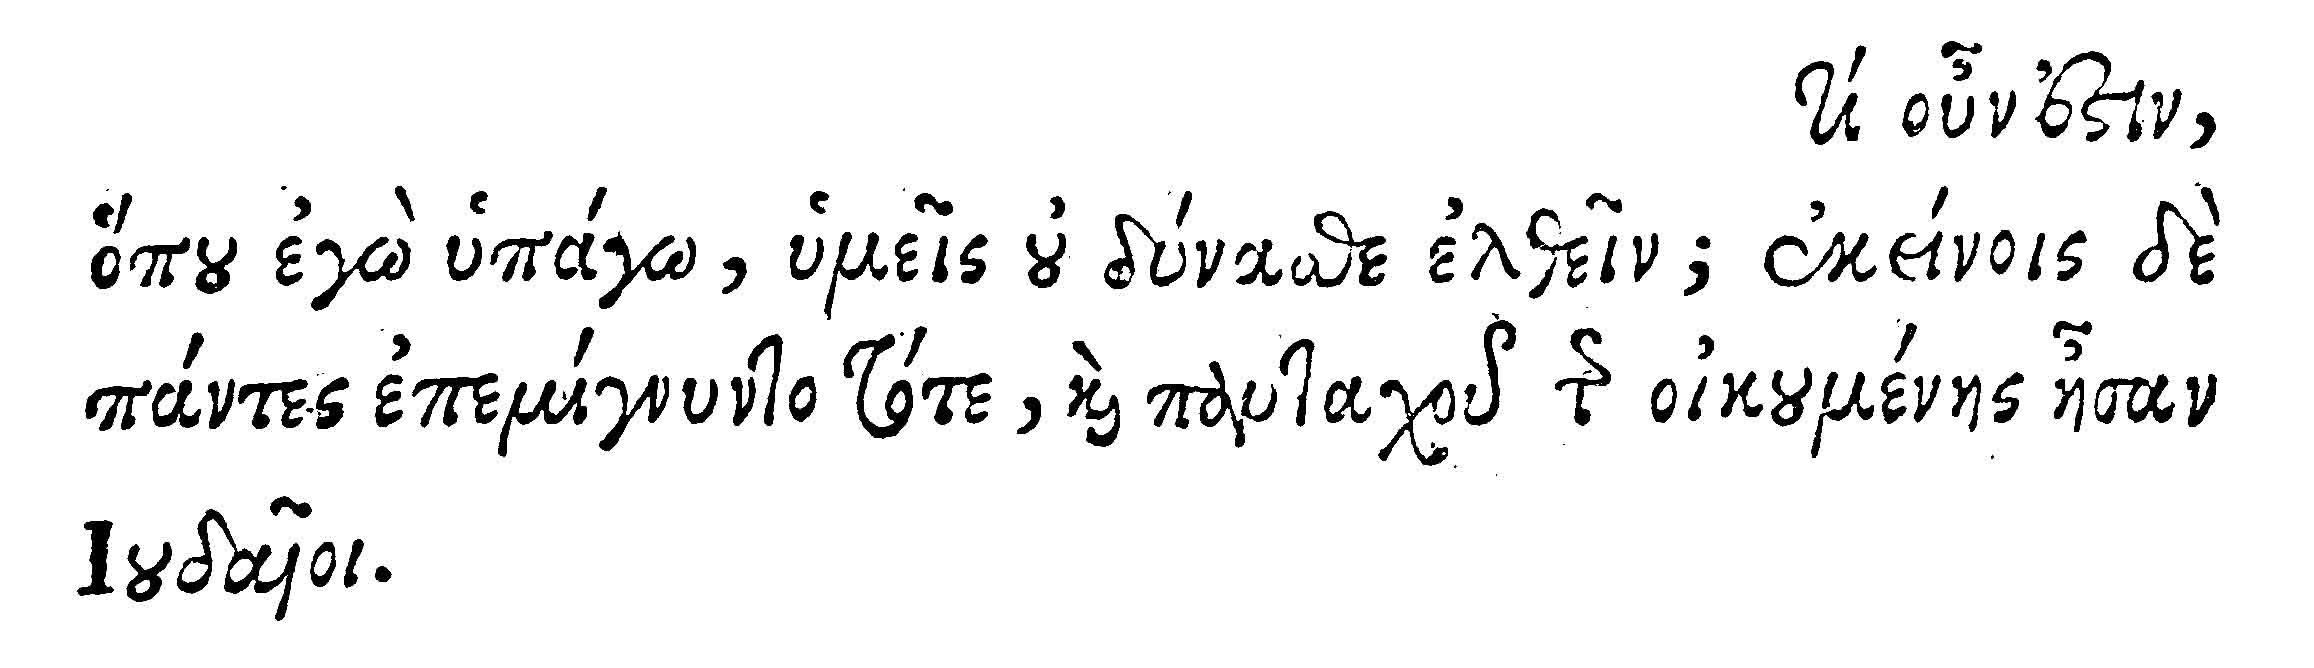 τί οὖν ἐστιν,
ὅπου ἐγὼ ὑπάγω, ὑμεῖς οὐ δύνασθε ἐλθεῖν; ἐκείνοις δὲ
πάντες ἐπεμίγνυντο τότε, καὶ πανταχοῦ τῆς οἰκουμένης ἦσαν
Ιουδαῖοι.